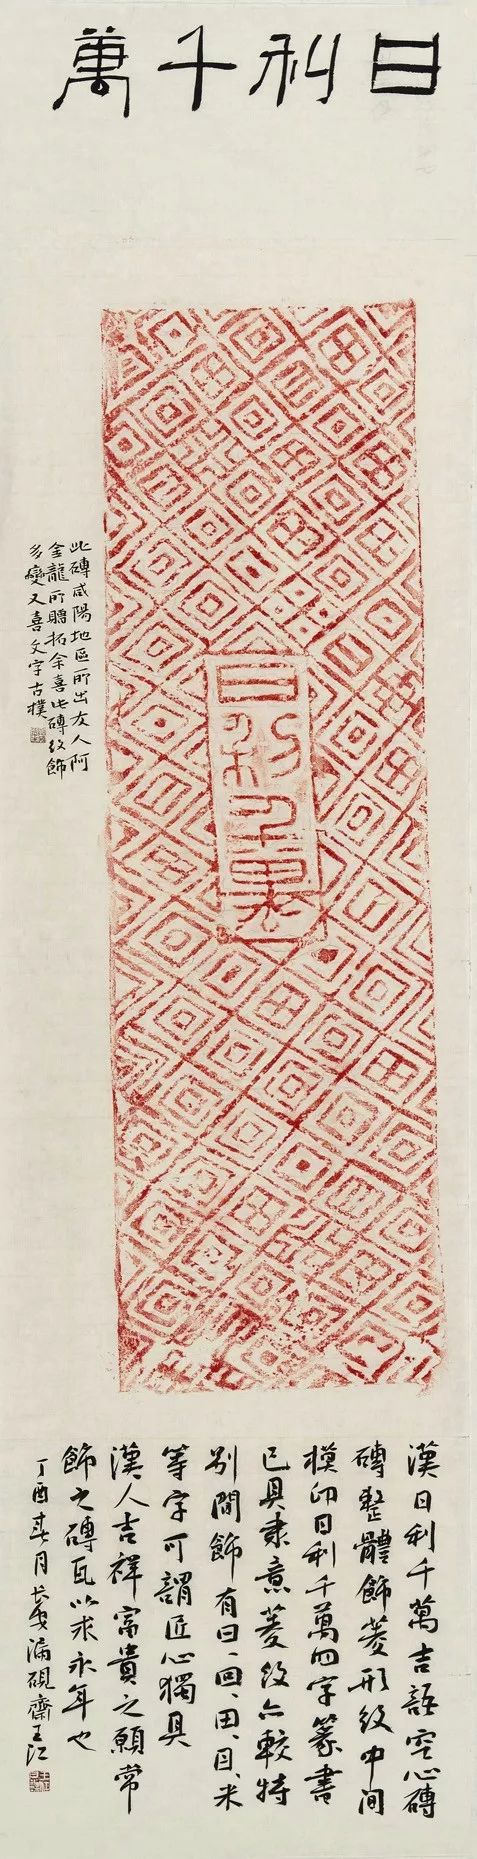 日利千萬
日利千萬
此磚咸陽地區所出友人阿
金龍所贈拓余喜此磚紋飾
多變又喜文字古樸
漢日利千萬吉語空心磚
磚整體飾菱形紋中間
模印日利千萬四字篆書
已具隶意菱紋亦較特
别間飾有日、回、田、目、米
等字可謂匠心獨具
漢人吉祥富貴之願常
飾之磚瓦以求永年也
丁酉春月長安漏硯齋王江